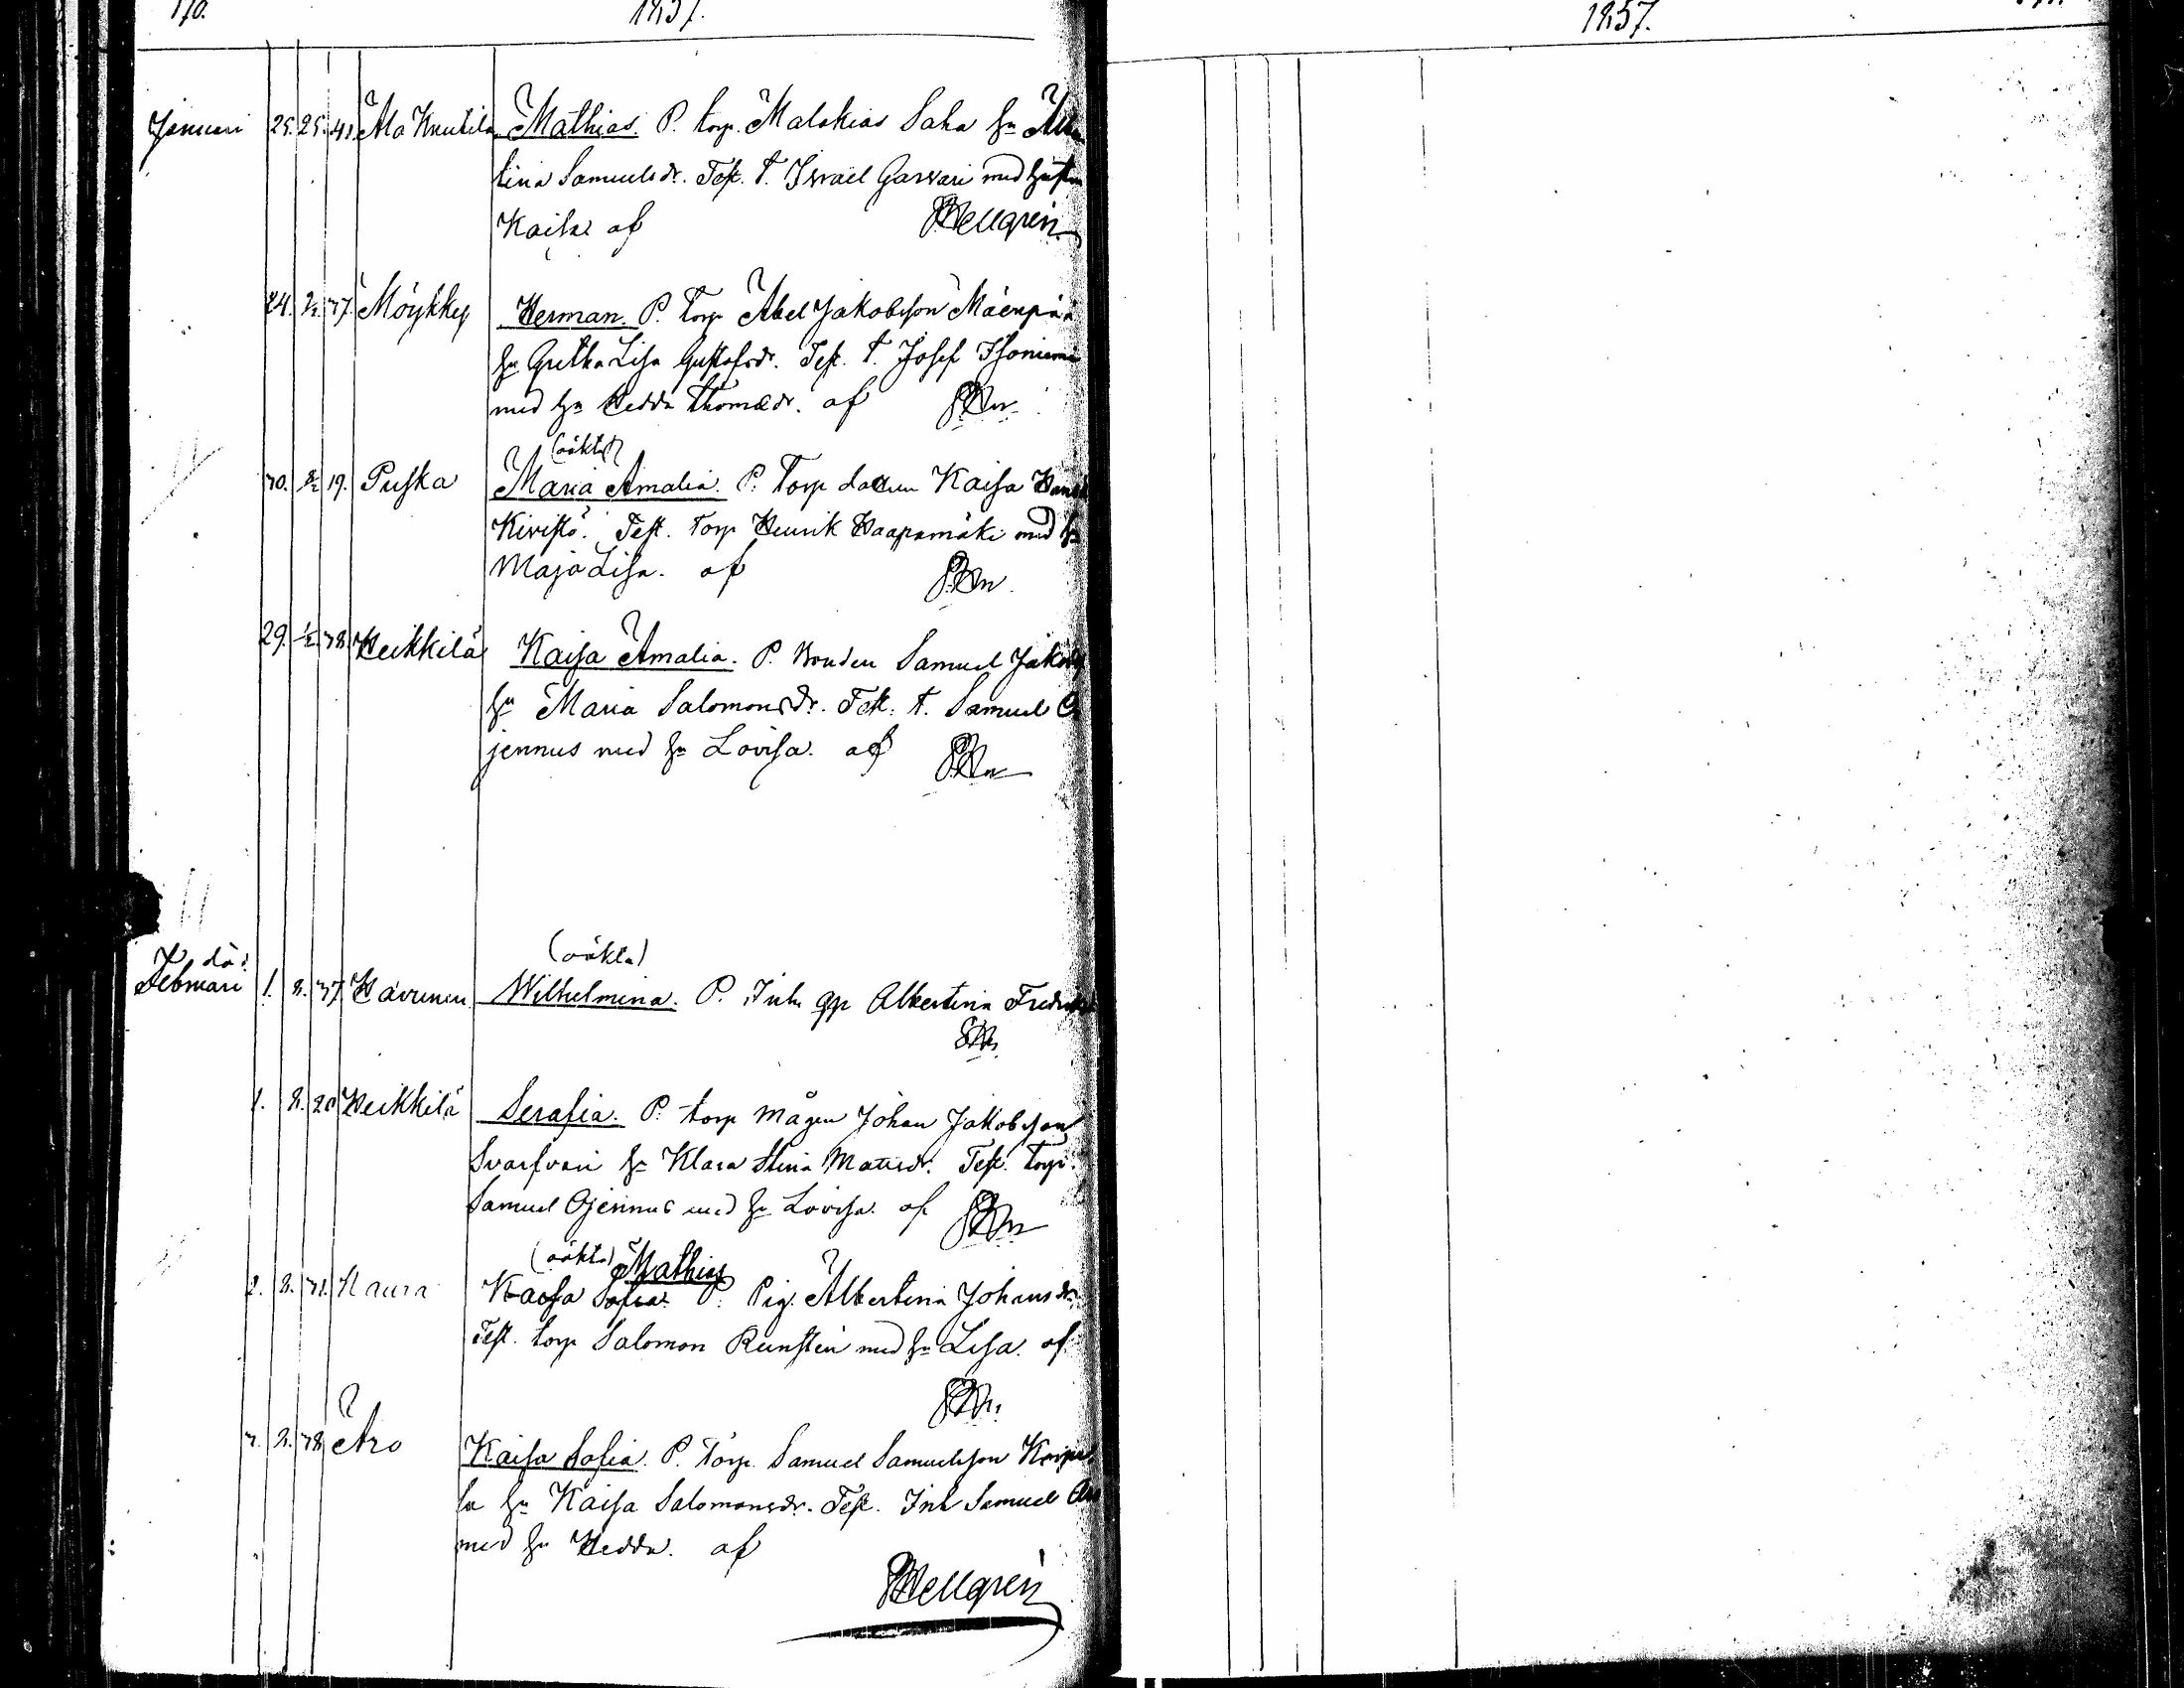 170. 1857.
Januari 25. 25. 41. Ala Knutila Mathias. P. torp. Malakias Saha hu
tina Samuelsdr. Test. t. Israel Garvari med hustru
Kaisa af PHellgren
24. 2/2. 37. Möykky Herman. P. Torp Abel Jakobsson Mäenpää
hu Gretha Lisa Gustafsdr. Test. t. Josef Isoniemi
med hu Hedda Thomædr. af
(oäkta)
30. 19. Puska Maria Amalia. P. Torp dottern Kaisa
Kivistö. Test. torp Henrik Haapamäki med hu
Maja Lisa. af
29. 1/2. 38. Heikkilä Kaisa Amalia. P. Bonden Samuel
hu Maria Salomonsdr. Test. t. Samuel O
jennus med hu Lovisa. af
(oäkta)
död.
Februari 1. 2. 37. Havunen Wilhelmina. P. Inh qp Albertina
1. 2. 20 Heikkilä Serafia. P. torp mågen Johan Jakobsson
Svarfvari hu Klara Stina Mattsdr. Test. torp.
Samuel Ojennus med hu Lovisa. af
(oäkta) Mathias
2. 2. 31. Kaura Kaisa Sofia. P. Pig. Albertina Johansdr.
Test. torp Salomon Reinstein med hu Lisa. af
3. 2. 38 Aro Kaisa Sofia. P. Torp. Samuel Samuelsson
la hu Kaisa Salomonsdr. Test. Inh Samuel
med hu Hedda. af
PHellgren
1857.